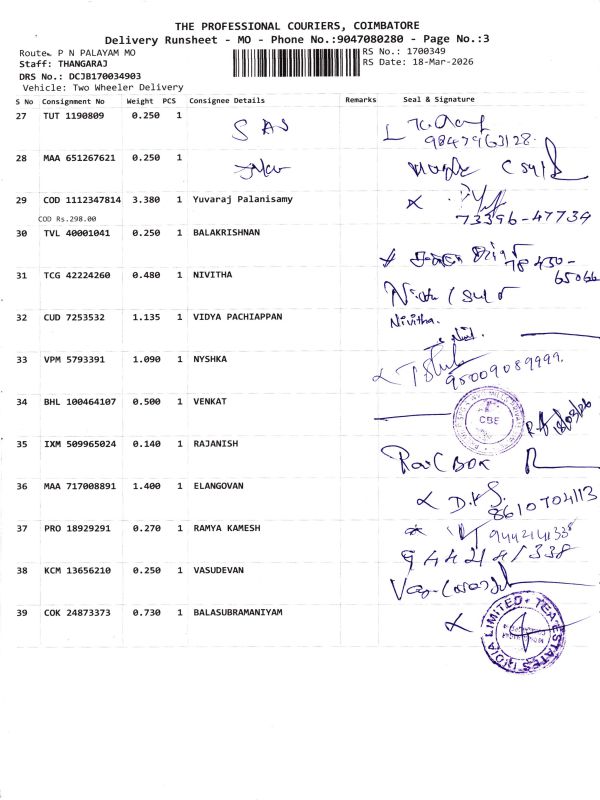 THE PROFESSIONAL COURIERS, COIMBATORE
Delivery Runsheet - MO - Phone No.:9047080280 - Page No.:3
Route: P N PALAYAM MO
RS No.: 1700349
Staff: THANGARAJ
RS Date: 18-Mar-2026
DRS No.: DCJB170034903
Vehicle: Two Wheeler Delivery
S No Consignment No Weight PCS Consignee Details Remarks Seal & Signature
27 TUT 1190809 0.250 1 SAS
28 MAA 651267621 0.250 1
29 COD 1112347814 3.380 1 Yuvaraj Palanisamy
COD Rs.298.00 73396-47734
30 TVL 40001041 0.250 1 BALAKRISHNAN
78450-
65066
31 TCG 42224260 0.480 1 NIVITHA
32 CUD 7253532 1.135 1 VIDYA PACHIAPPAN Nivitha.
33 VPM 5793391 1.090 1 NYSHKA
95009089999.
34 BHL 100464107 0.500 1 VENKAT CBE
18/03/26
35 IXM 509965024 0.140 1 RAJANISH
36 MAA 717008891 1.400 1 ELANGOVAN D.K.S.
8610704113
37 PRO 18929291 0.270 1 RAMYA KAMESH 9442141338
38 KCM 13656210 0.250 1 VASUDEVAN
39 COK 24873373 0.730 1 BALASUBRAMANIYAM
TEA ESTATES INDIA LIMITED